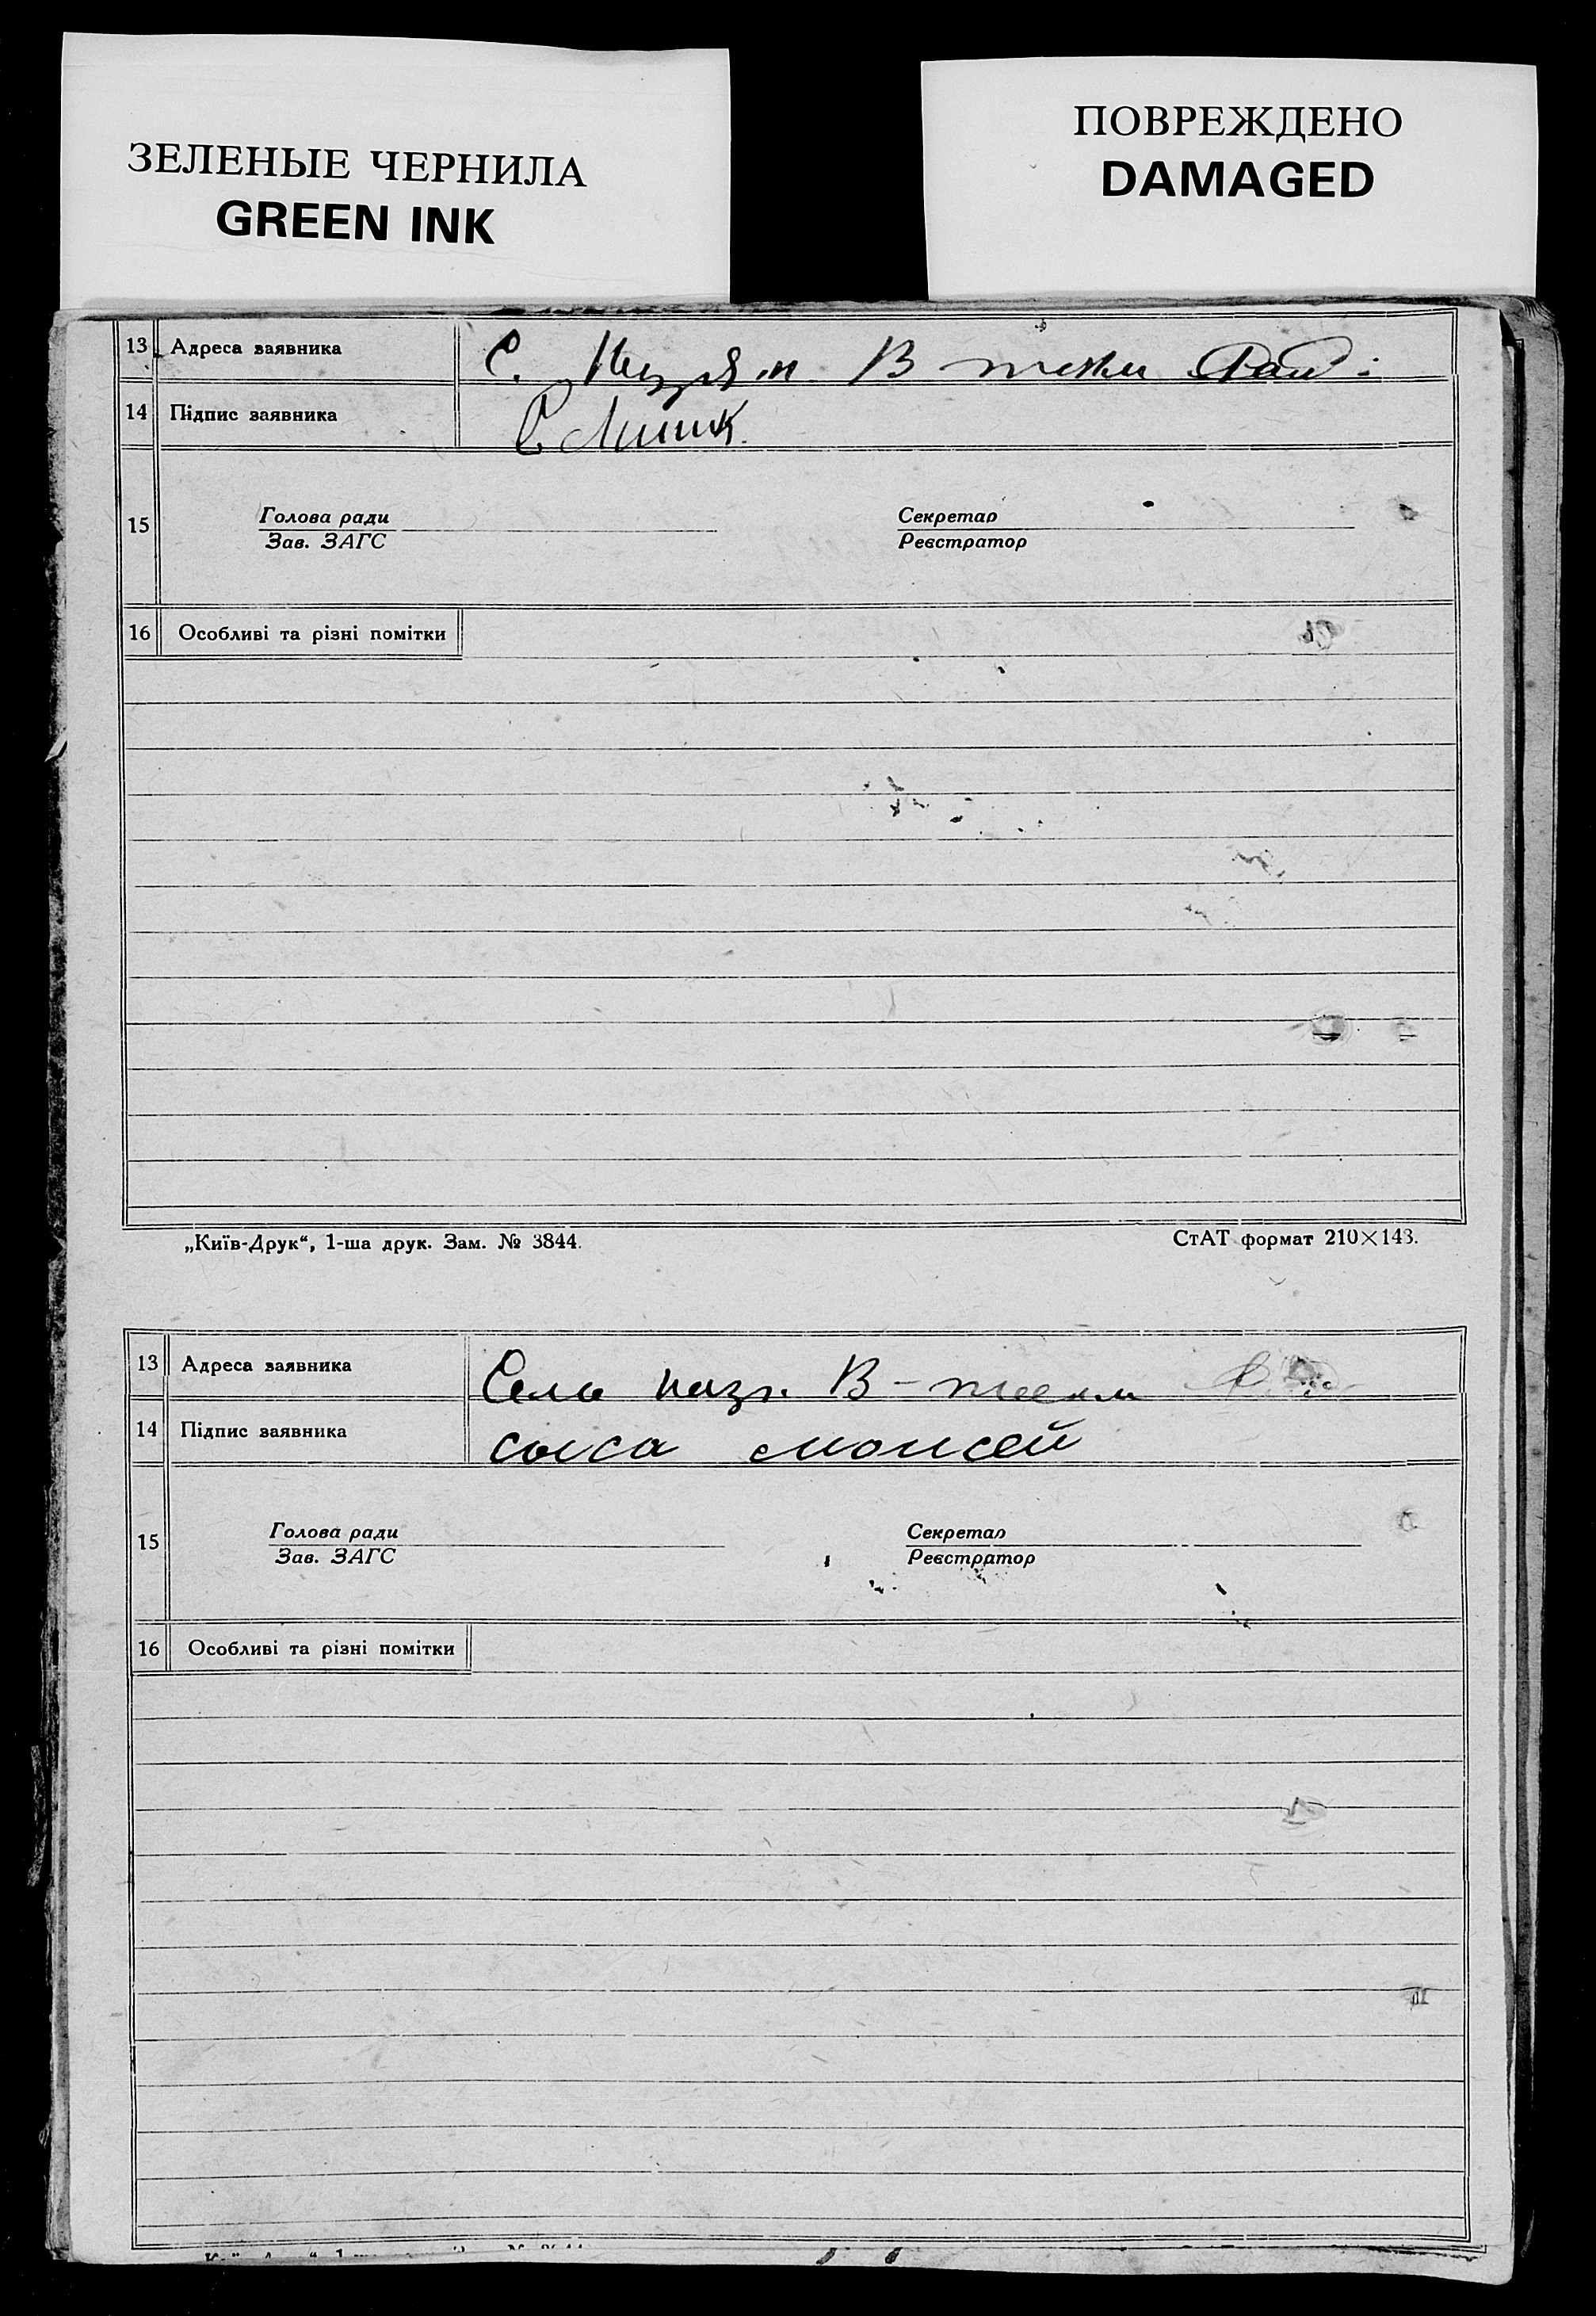 ЗЕЛЕНЫЕ ЧЕРНИЛА
GREEN INK
ПОВРЕЖДЕНО
DAMAGED
13 Адреса заявника С. В
14 Підпис заявника
15 Голова ради Секретар
Зав. ЗАГС Реєстратор
16 Особливі та різні помітки
„Київ-Друк“, 1-ша друк. Зам. № 3844. СтАТ формат 210×143.
13 Адреса заявника Село В –
14 Підпис заявника мойсей
15 Голова ради Секретар
Зав. ЗАГС Реєстратор
16 Особливі та різні помітки